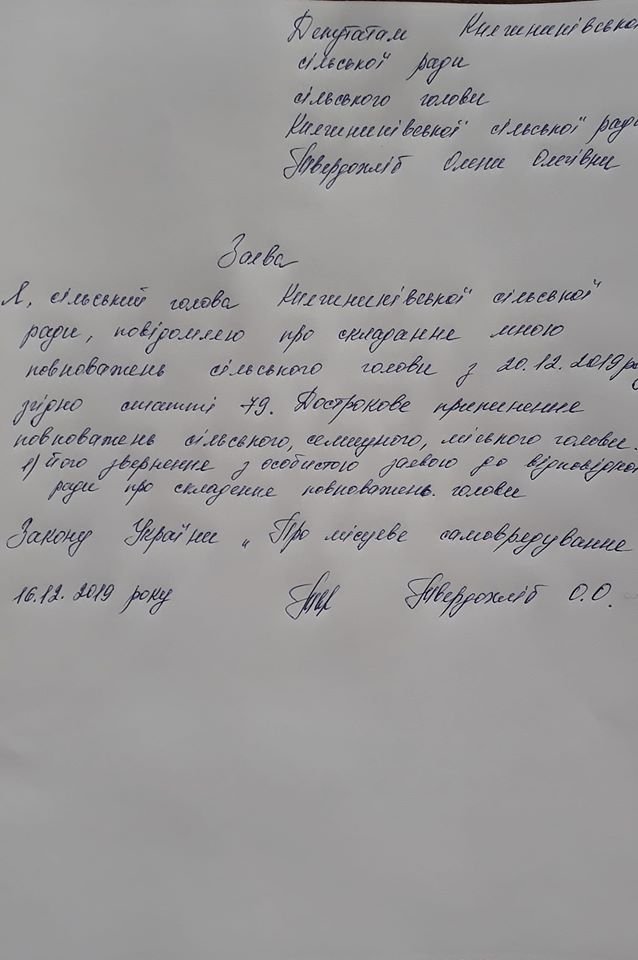 Депутатам Княгининівсько
сільської ради
сільського голови
Княгининівської сільської рад
Твердохліб Олени Олегівни
Заява
Я, сільський голова Княгининівської сільської
ради, повідомляю про складання мною
повноважень сільського голови з 20.12.2019 ро
згідно статті 79. Дострокове припинення
повноважень сільського, селищного, міського голови.
1) його звернення з особистою заявою до відповідної
ради про складення повноважень голови
Закону України „Про місцеве самоврядування
16.12.2019 року Твер Твердохліб О.О.